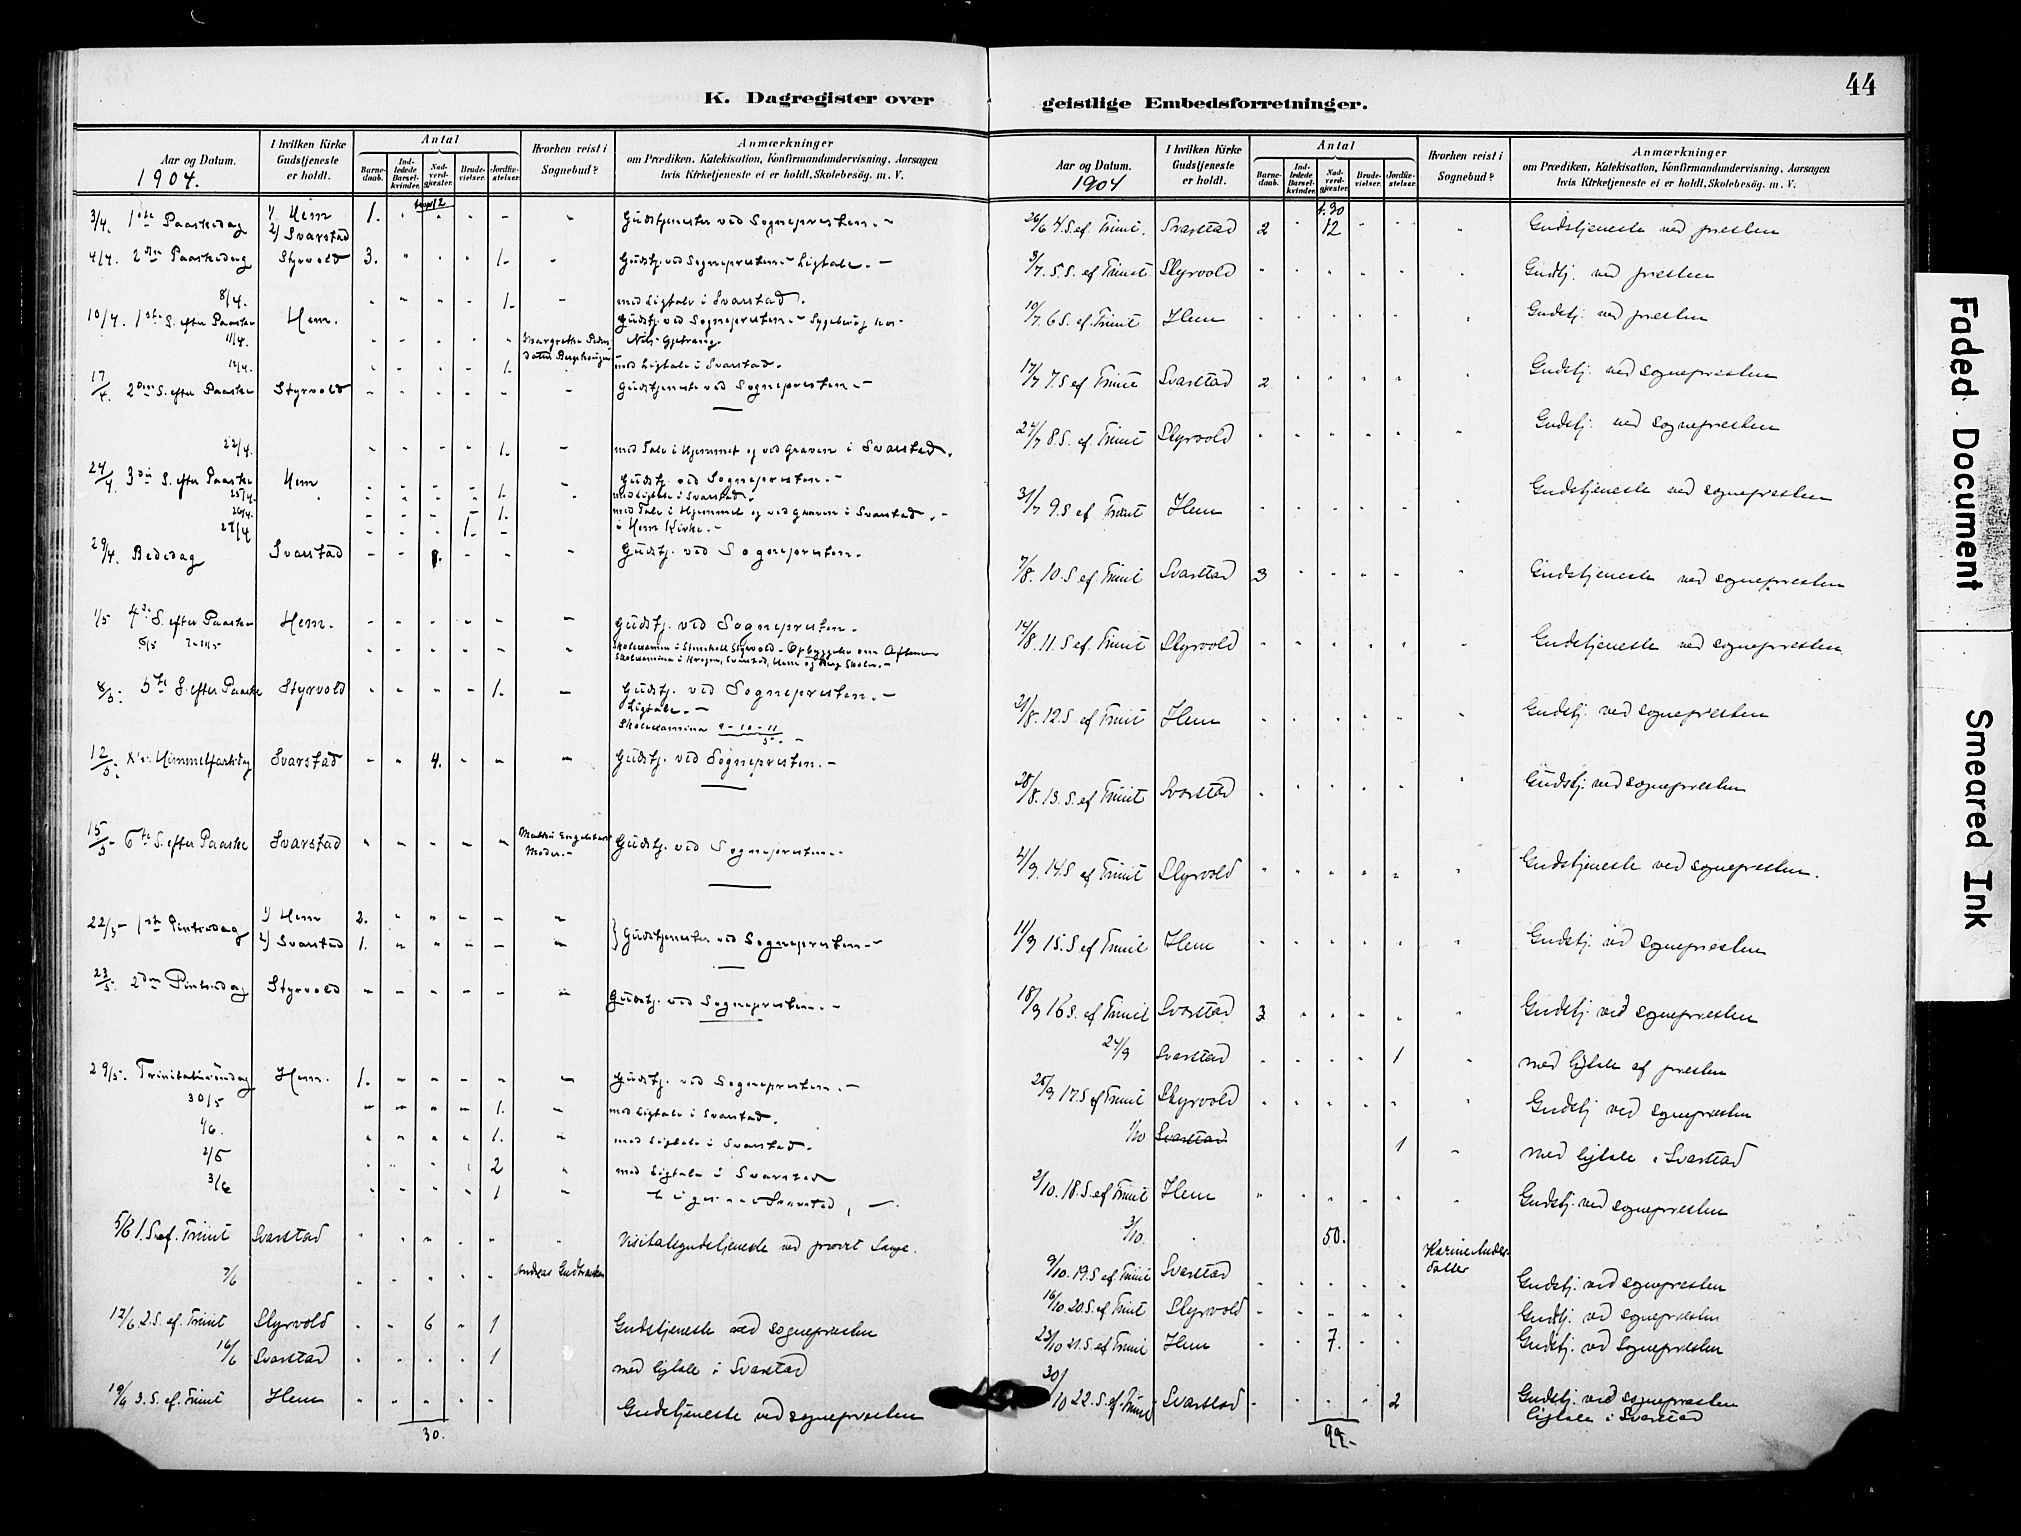 44
K. Dagregister over
geistlige Embedsforretninger.
Aar og Datum.
1904.
I hvilken Kirke Gudstjeneste er holdt.
Antal
Barnedaab.
Indledede Barselkvinder.
Nadverdgjester.
Brudevielser.
Jordfæstelser.
Hvorhen reist i Sognebud?
Anmærkninger
om Prædiken, Katekisation, Konfirmandundervisning, Aarsagen
hvis Kirketjeneste ei er holdt, Skolebesög. m. V.
3/4. 1ste Paaskedag 1) Hem 1. " " - - " Gudstjenester ved Sognepresten. -
2) Svarstad
4/4. 2den Paaskedag Styrvold 3. " " " 1. - Gudstj. ved Sognepresten - Ligtale. -
8/4. " " " " 1. - med Ligtale i Svarstad.
10/4. 1ste S. efter Paaske Hem. Gudstj. ved Sognepresten. - Sygebesøg hos
11/4. " " " " " Margrethe Peders- Nils Gjetrang.
datter
12/4. " " " " 1. - med Ligtale i Svarstad.
17/4. 2den S. efter Paaske Styrvold - - - - - " Gudstjeneste ved Sognepresten -
22/4. " " " " 1. - med Tale i Hjemmet og ved Graven i Svarstad.
24/4 3die S. efter Paaske Hem " Gudstj. ved Sognepresten. -
25/4. - - - - 1. " med Ligtale i Svarstad.
26/4. - - - - 1. med Tale i Hjemmet og ved Graven i Svarstad. -
27/4 - - - 1. - i Hem Kirke. -
29/4. Bededag Svarstad - - 8. - - " Gudstj. ved Sognepresten.
1/5 4de S. efter Paaske Hem. - - - - - - Gudstj. ved Sognepresten.
Styrvold - Opbyggelse om Aftenen
Svarstad, Hem og Berg Skoler. -
8/5. 5te S. efter Paaske Styrvold - - - - 1. - Gudstj. ved Sognepresten. -
Ligtale. -
Skoleexamina 9 - 10 - 11
5.
12/5. Kr. Himmelfartsdag Svarstad - - 4. - - - Gudstj. ved Sognepresten. -
15/5 - 6te S. efter Paaske Svarstad " " " " - Gudstj. ved Sognepresten. -
Moder. -
22/5 - 1ste Pintsedag 1) Hem 2. " " - - "
2) Svarstad 1. " " - - " } Gudstjenester ved Sognepresten. -
23/5. 2den Pintsedag Styrvold - - - - - " Gudstj. ved Sognepresten. -
29/5. Trinitatissöndag Hem. 1. - - - - - Gudstj. ved Sognepresten. -
30/5 " " " " 1. - med Ligtale i Svarstad.
1/6. " " " " 1. - med Ligtale i Svarstad.
2/6 " " " 2 " med Ligtale i Svarstad
3/6 " " " " 1 " Svarstad, -
5/6 1. S. ef. Trinit Svarstad " " " " " " Visitatsgudstjeneste ved provst Lange.
7/6 " " " " " Andreas Gudbrandsen
12/6. 2. S. ef. Trinit Styrvold " " 6 " 1 Gudstjeneste ved sognepræsten
16/6 Svarstad " " " " 1 med ligtale i Svarstad
19/6 3. S. ef. Trinit Hem " " " " " Gudstjeneste ved sognepræsten
30.
Aar og Datum.
1904
I hvilken Kirke Gudstjeneste er holdt.
Antal
Barnedaab.
Indledede Barselkvinder.
Nadverdgjester.
Brudevielser.
Jordfæstelser.
Hvorhen reist i Sognebud?
Anmærkninger
om Prædiken, Katekisation, Konfirmandundervisning, Aarsagen
hvis Kirketjeneste ei er holdt, Skolebesög. m. V.
t. 30
26/6 4. S. ef. Trinit. Svarstad 2 " 12 " " " Gudstjeneste ved presten
3/7. 5. S. ef Trinit Styrvold " " " " " " Gudstj. ved presten
10/7. 6 S. ef. Trinit Hem " " " " " " Gudstj. ved presten
17/7 7. S. ef Trinit Svarstad 2 " " " " " Gudstj. ved sognepresten
24/7 8. S. ef Trinit Styrvold " " " " " " Gudstj. ved sognepresten
31/7 9. S. ef Trinit Hem " " " " " " Gudstjeneste ved sognepresten
7/8. 10. S ef Trinit Svarstad 3 " " " " " Gudstjeneste ved sognepresten
14/8. 11. S ef Trinit Styrvold " " " " " " Gudstjeneste ved sognepresten.
21/8. 12. S ef Trinit Hem " " " " " " Gudstj. ved sognepresten
28/8. 13. S. ef Trinit Svarstad " " " " " " Gudstj. ved sognepresten
4/9. 14. S ef Trinit Styrvold " " " " " " Gudstjeneste ved sognepresten.
11/9 15. S ef Trinit Hem " " " " " " Gudstj. ved sognepresten
18/9 16 S. ef Trinit Svarstad 3 " " " " " Gudstj. ved sognepresten
24/9 Svarstad " " " " 1 " med ligtale af presten
25/9 17. S ef Trinit Styrvold " " " " " " Gudstj ved sognepresten
1/10 Svarstad 1 " med ligtale i Svarstad
2/10. 18. S. ef Trinit Hem " " " " " " Gudstj. ved sognepresten
3/10. " 50.
9/10. 19. S ef Trinit Svarstad " " " " " Karine Anders- Gudstj. ved sognepresten
datter
16/10. 20. S. ef Trinit Styrvold " " " " " Gudstj. ved sognepresten
23/10 21. S. ef Trinit Hem " " 7. " " Gudstj. ved Sognepresten
30/10 22. S. ef. Trinit Svarstad " " " " 2 Gudstj. ved sognepresten
ligtale i Svarstad
99.-
Faded Document
Smeared Ink